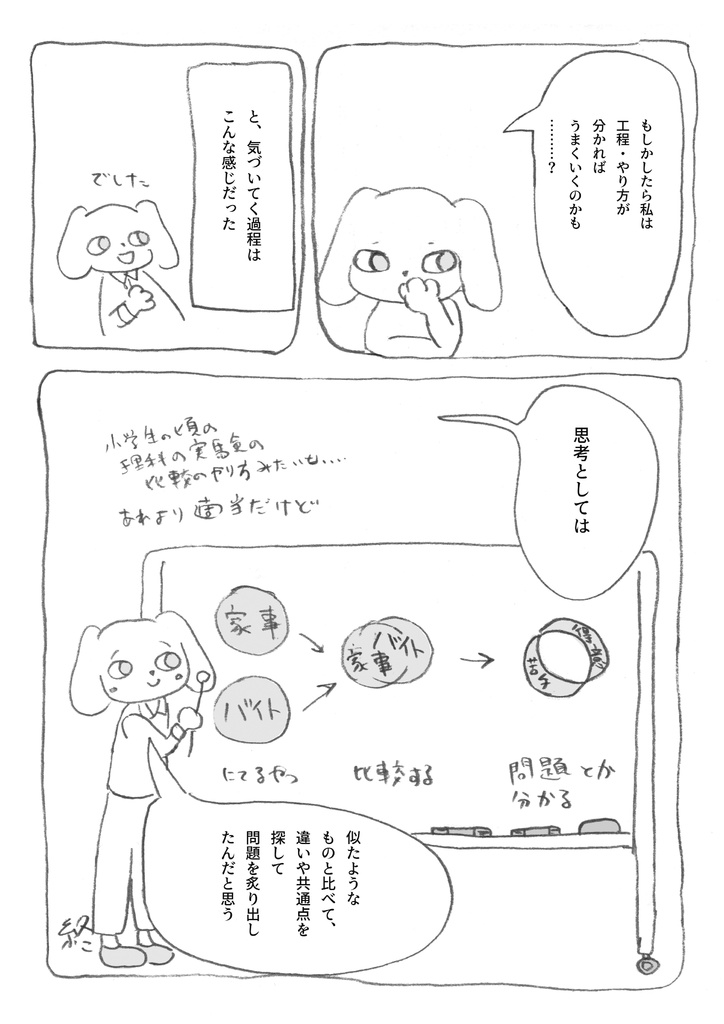 もしかしたら私は
工程・やり方が
分かれば
うまくいくのかも
………？
と、気づいてく過程は
こんな感じだった
でした
思考としては
小学生の頃の
理科の実験の
比較のやり方みたいな…
あれより適当だけど
家事
バイト
家事
バイト
得意
苦手
にてるやつ
比較する
問題とか
分かる
似たような
ものと比べて、
違いや共通点を
探して
問題を炙り出し
たんだと思う